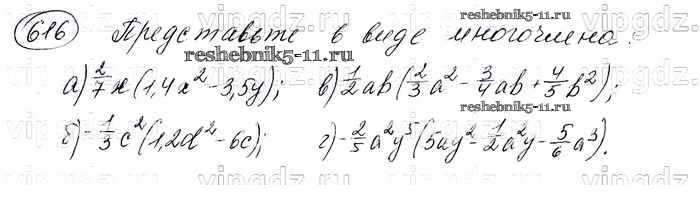 616 Представьте в виде многочлена:
reshebnik5-11.ru
reshebnik5-11.ru
а) 2/7 x (1,4x² - 3,5y); в) 1/2 ab (2/3 a² - 3/4 ab + 4/5 b²);
б) -1/3 c² (1,2d² - 6c); г) -2/5 a²y⁵ (5ay² - 1/2 a²y - 5/6 a³).
reshebnik5-11.ru
vipgdz.ru vipgdz.ru vipgdz.ru